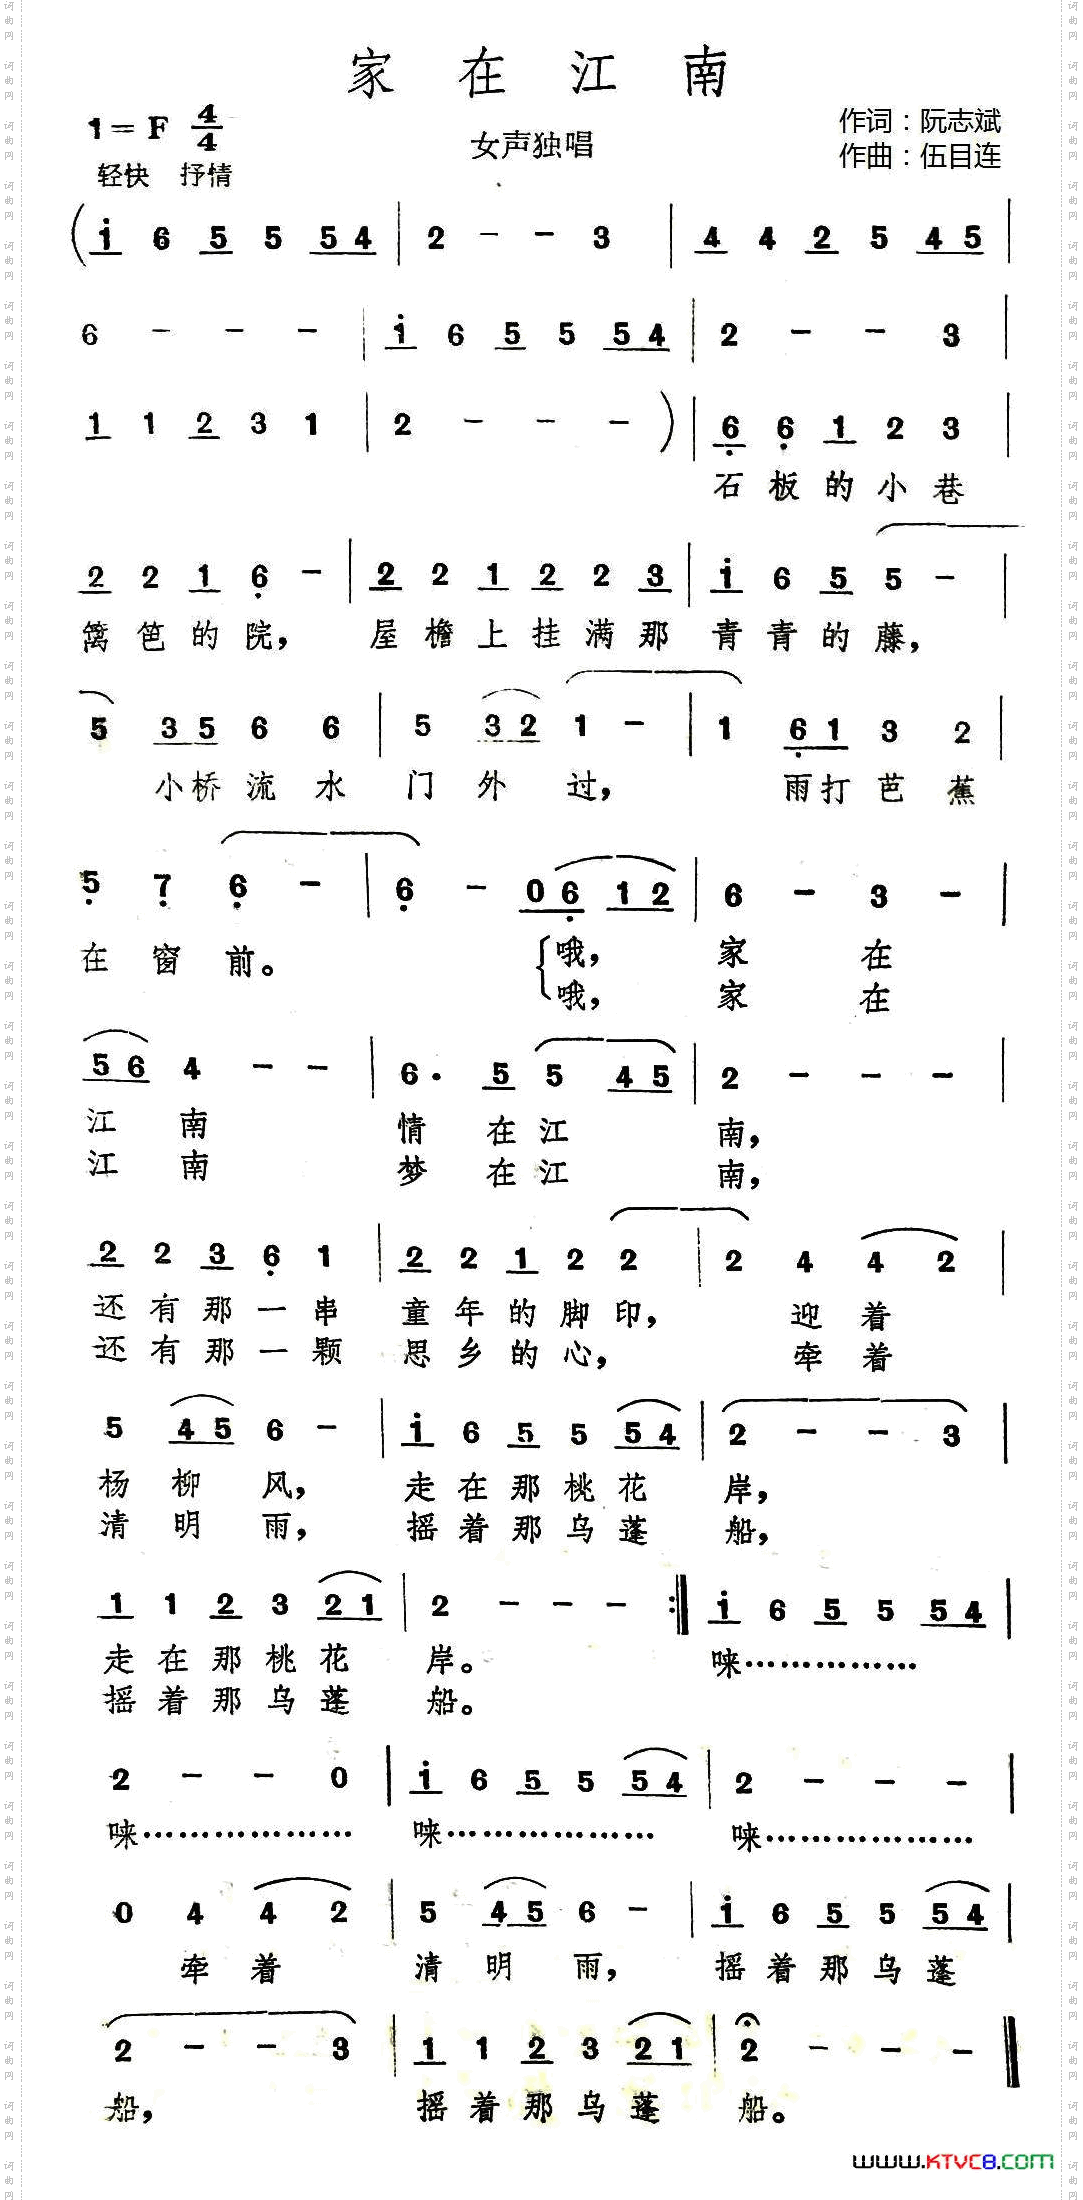 家在江南
1=F 4/4
轻快 抒情
女声独唱
作词：阮志斌
作曲：伍目连
( i 6 5 5 5 4 | 2 - - 3 | 4 4 2 5 4 5 |
6 - - - | i 6 5 5 5 4 | 2 - - 3 |
1 1 2 3 1 | 2 - - - ) | 6 6 1 2 3
石板的小巷
2 2 1 6 - | 2 2 1 2 2 3 | i 6 5 5 - |
篱笆的院，屋檐上挂满那青青的藤，
5 3 5 6 6 | 5 3 2 1 - | 1 6 1 3 2 |
小桥流水门外过，雨打芭蕉
5 7 6 - | 6 - 0 6 1 2 | 6 - 3 - |
在窗前。{哦，家在
哦，家在
5 6 4 - - | 6· 5 5 4 5 | 2 - - - |
江南情在江南，
江南梦在江南，
2 2 3 6 1 | 2 2 1 2 2 | 2 4 4 2 |
还有那一串童年的脚印，迎着
还有那一颗思乡的心，牵着
5 4 5 6 - | i 6 5 5 5 4 | 2 - - 3 |
杨柳风，走在那桃花岸，
清明雨，摇着那乌蓬船，
1 1 2 3 2 1 | 2 - - - :‖ i 6 5 5 5 4 |
走在那桃花岸。唻………………
摇着那乌蓬船。
2 - - 0 | i 6 5 5 5 4 | 2 - - - |
唻………………唻………………唻………………
0 4 4 2 | 5 4 5 6 - | i 6 5 5 5 4 |
牵着清明雨，摇着那乌蓬
2 - - 3 | 1 1 2 3 2 1 | 2 - - - ‖
船，摇着那乌蓬船。
www.KTVC8.com